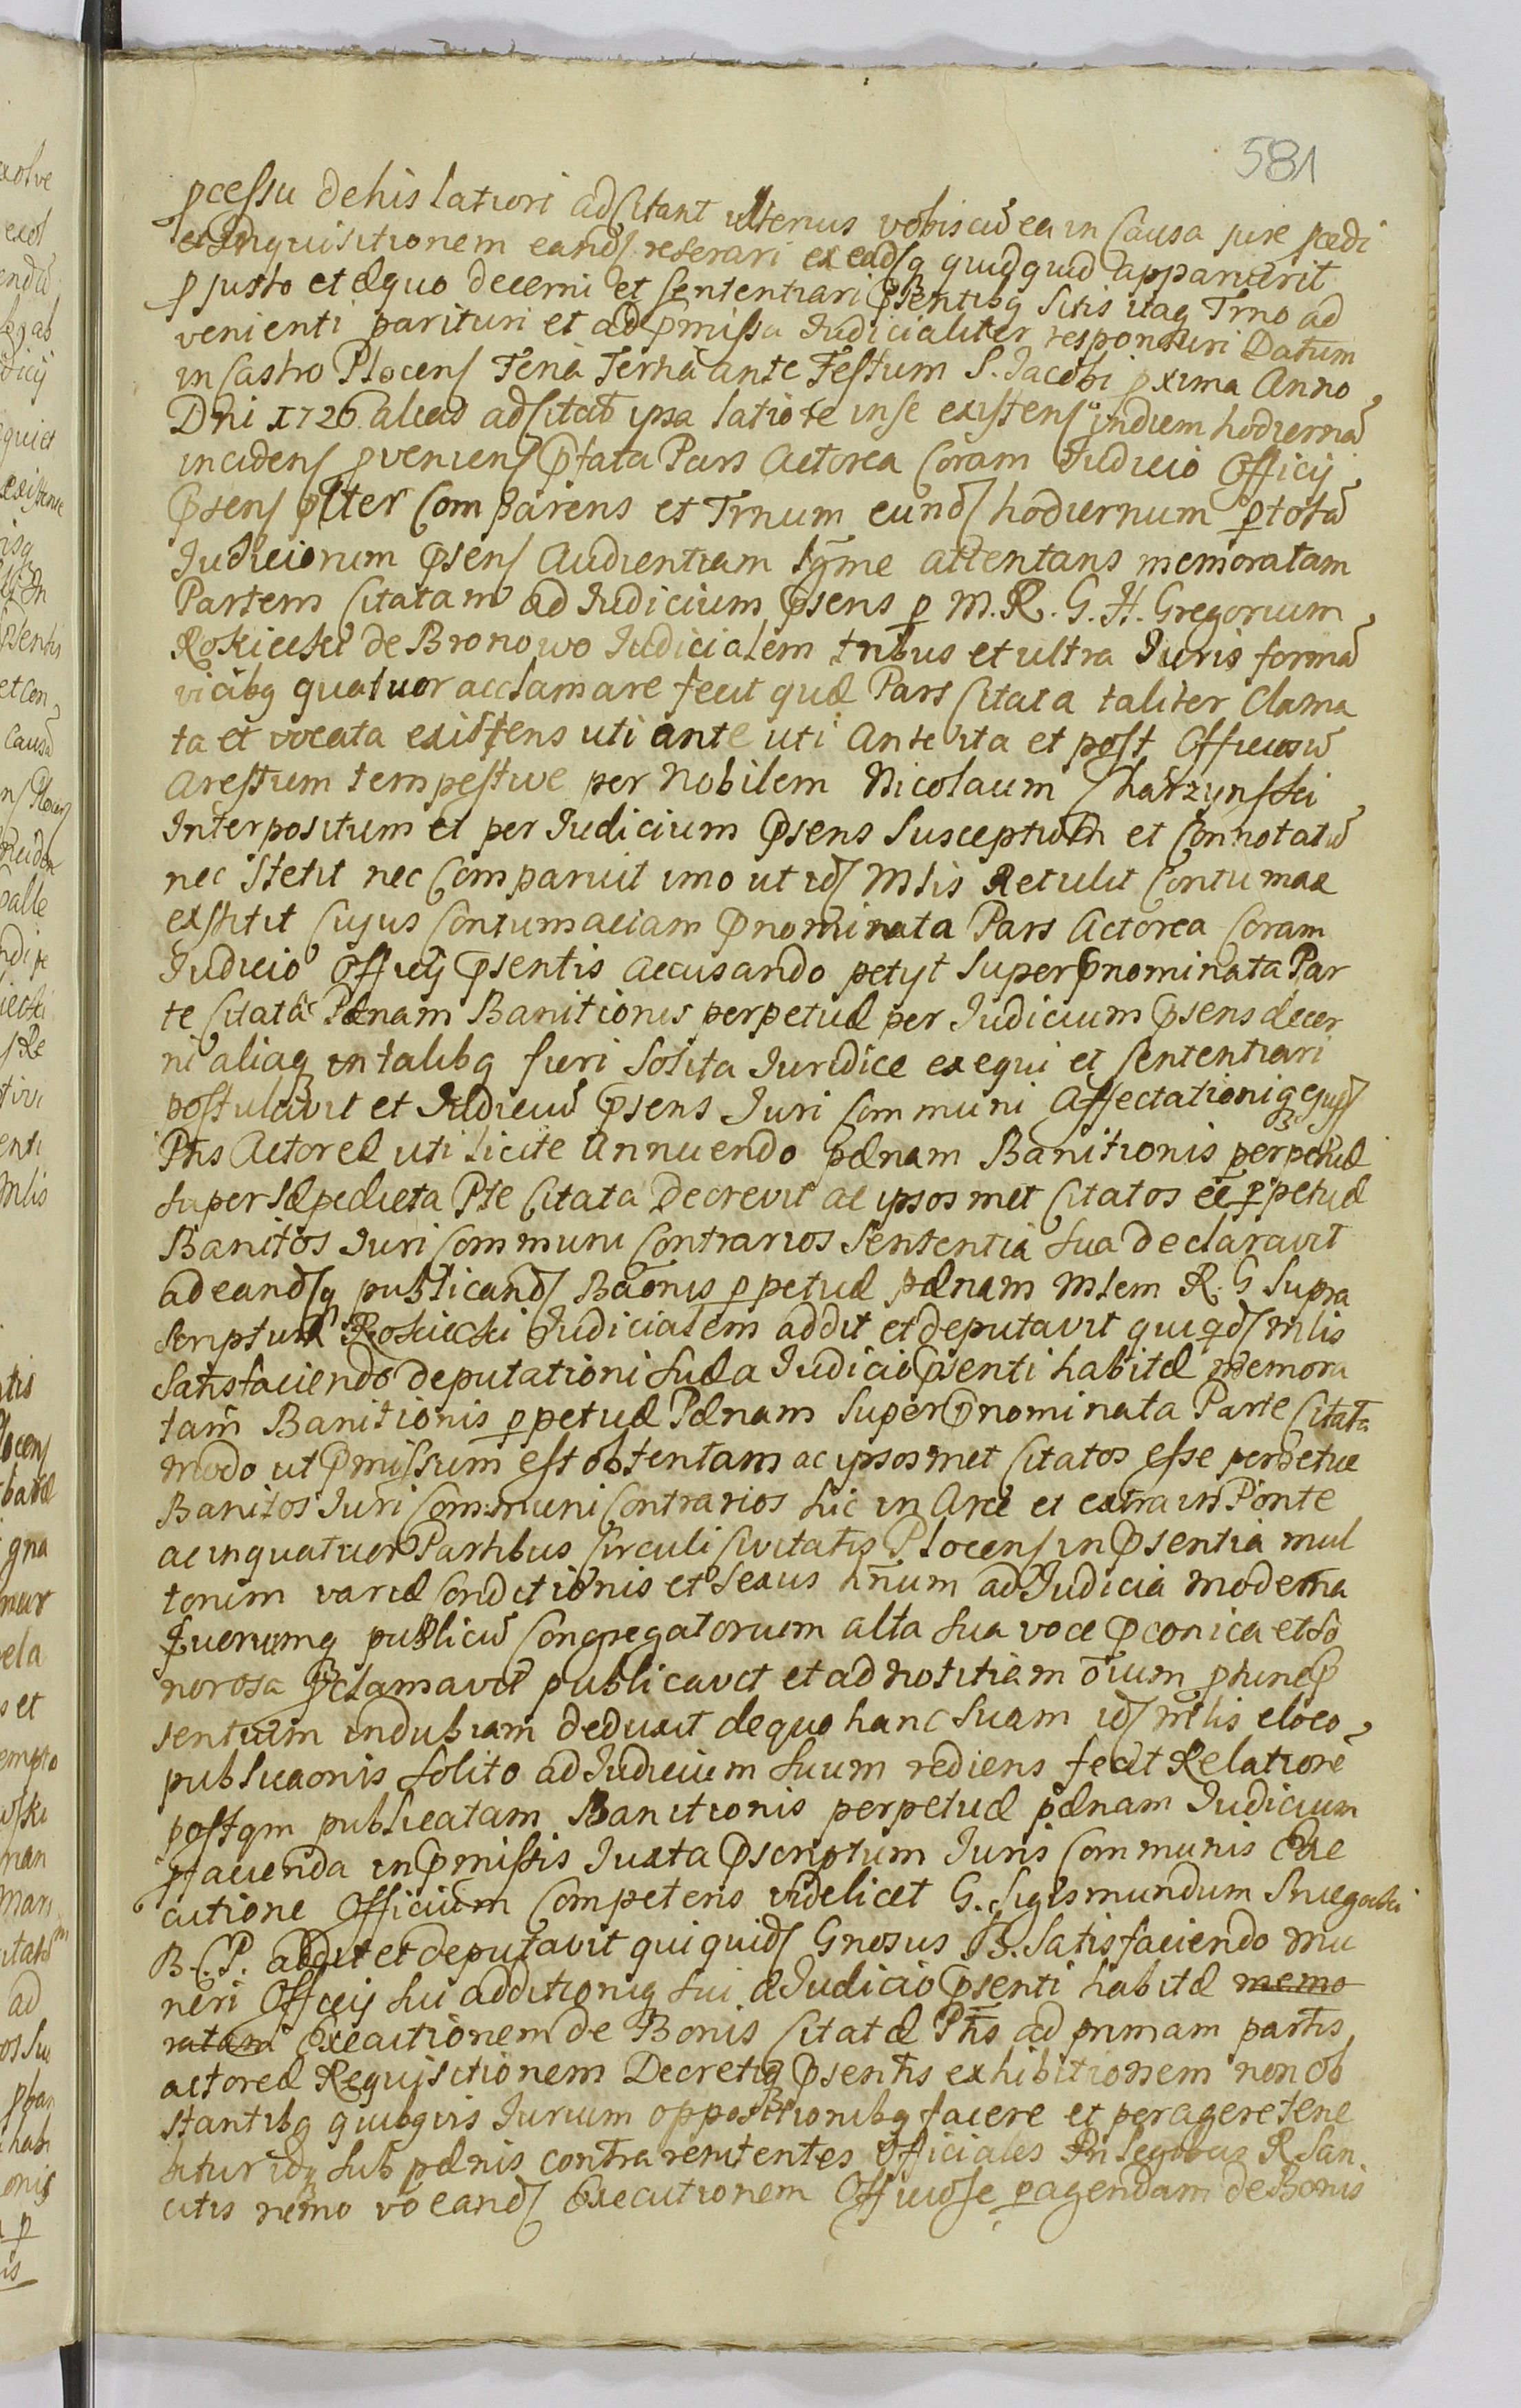 581
pcessu de his latiori adCitant ulterius vobiscū ea in Causa jure pcedi
et Inquisitionem eand reserari ex eadq quidquid apparuerit
p justo et æquo decerni et sententiari psentibq Sitis itaq Trno ad
venienti parituri et ad pmissa Judicialiter responsuri Datum
in Castro Plocens Feria Tertia ante Festum S. Jacobi pxima Anno
Dni 1726 alias adCitat ipsa latiore in se existens in diem hodiernā
incidens pveniens pfata Pars Actorea Coram Judicio Officij
psens plter Comparens et Trnum eund hodiernum p totā
Judiciorum psens Audientiam lgme attentans memoratam
Partem Citatam ad Judicium psens p M. R. G. H. Gregorium
Rokiecki de Bronowo Judicialem tribus et ultra Juris formā
vicibq quatuor acclamare fecit quæ Pars Citata taliter Clama
ta et vocata existens uti ante uti Ante ita et post Officiosū
Arestum tempestive per Nobilem Nicolaum Charzynski
Interpositum et per Judicium psens Susceptum et Connotatū
nec Stetit nec Comparuit imo ut id Mlis Retulit Contumax
exstitit Cujus Contumaciam pnominata Pars Actorea Coram
Judicio Officij psentis accusando petijt Super pnominata Par
te Citata Pænam Banitionis perpetuæ per Judicium psens decer
ni aliaq in talibq fieri Solita Juridice exequi et Sententiari
postulavit et Judiciū psens Juri Communi Affectationiq ejusd
Ptis Actoreæ uti licite annuendo pænam Banitionis perpetuæ
super Sæpedicta Pte Citata Decrevit ac ipsosmet Citatos ee ppetuæ
Banitos Juri Communi Contrarios Sententia Sua declaravit
ad eandq publicand Baonis ppetuæ pænam Mlem R. G Supra
scriptum Rokiecki Judicialem addit et deputavit qui qd Mlis
Satisfaciendo deputationi Suæ a Judicio psenti habitæ memora
tam Banitionis ppetuæ Pænam Super pnominata Parte Citata
modo ut pmissum est obtentam ac ipsosmet Citatos esse perpetue
Banitos Juri Communi Contrarios hic in Arce et extra in Ponte
ac in quatuor Partibus Circuli Civitatis Plocens in psentia mul
torum variæ Conditionis et Sexus hnum ad Judicia moderna
Fuerumq publicū Congregatorum alta Sua voce pconica et So
norosa pclamavit publicavit et ad notitiam oium phinc p
sentium indubiam deduxit de quo hanc Suam id mlis eloco
publicaonis Solito ad Judicium Suum rediens fecit Relationē
postqm publicatam Banitionis perpetuæ pænam Judicium
p facienda in pmissis Juxta pscriptum Juris Communis Exe
cutione Officium Competens videlicet G. Sigismundum Sniegocki
B. C. P. addit et deputavit qui quid Gnosus B. Satisfaciendo mu
neri Officij Sui additioniq Sui a Judicio psenti habitæ memo
ratam Executionem de Bonis Citatæ Ptis ad primam partis
actoreæ Requisitionem Decretiq psentis exhibitionem non ob
stantibq quibqvis Jurium oppositionibq facere et peragere tene
bitur idq Sub pænis contra renitentes Officiales in Legibus R San
citis nemo vo eand Executionem Officiose pagendam de Bonis